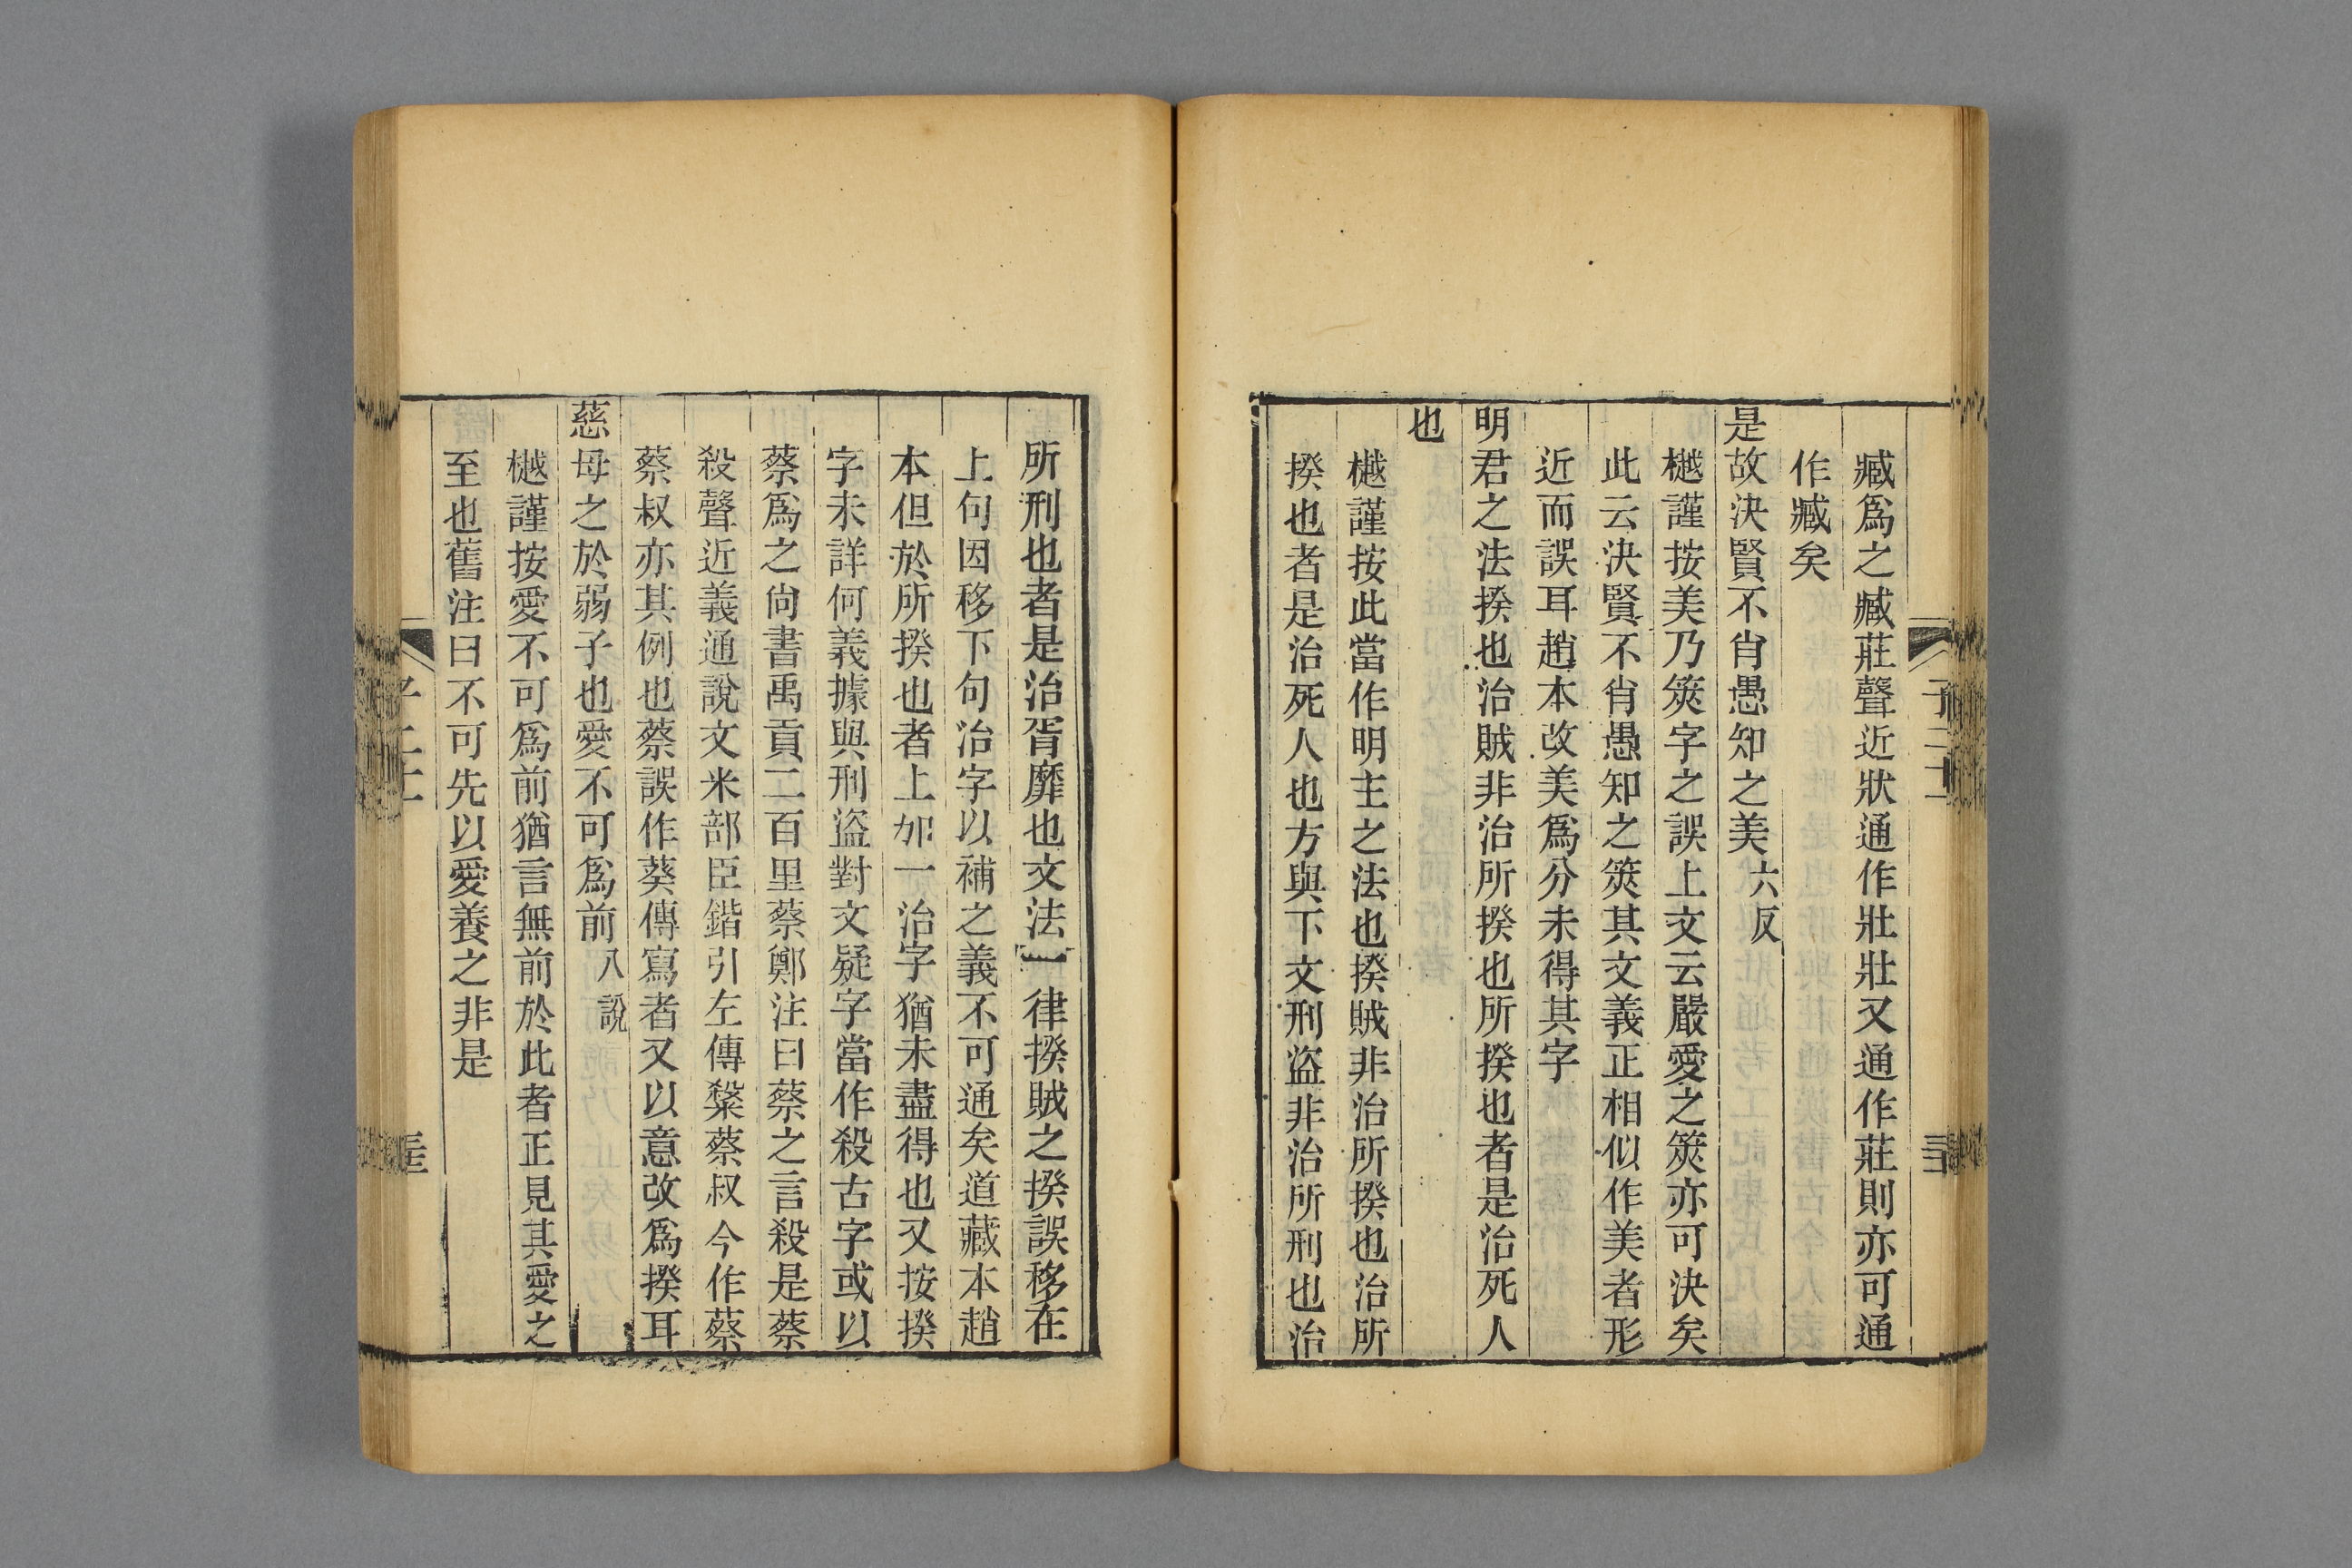 臧爲之臧莊聲近狀通作壯壯又通作莊則亦可通
作臧矣
是故決賢不肖愚知之美六反
樾謹按美乃筴字之誤上文云嚴愛之筴亦可決矣
此云決賢不肖愚知之筴其文義正相似作美者形
近而誤耳趙本改美爲分未得其字
明君之法揆也治賊非治所揆也所揆也者是治死人
也
樾謹按此當作明主之法也揆賊非治所揆也治所
揆也者是治死人也方與下文刑盜非治所刑也治
所刑也者是治胥靡也文法一律揆賊之揆誤移在
上句因移下句治字以補之義不可通矣道藏本趙
本但於所揆也者上加一治字猶未盡得也又按揆
字未詳何義據與刑盜對文疑字當作殺古字或以
蔡爲之尙書禹貢二百里蔡鄭注曰蔡之言殺是蔡
殺聲近義通說文米部臣鍇引左傳䊝蔡叔今作蔡
蔡叔亦其例也蔡誤作葵傳寫者又以意改爲揆耳
慈母之於弱子也愛不可爲前八說
樾謹按愛不可爲前猶言無前於此者正見其愛之
至也舊注曰不可先以愛養之非是